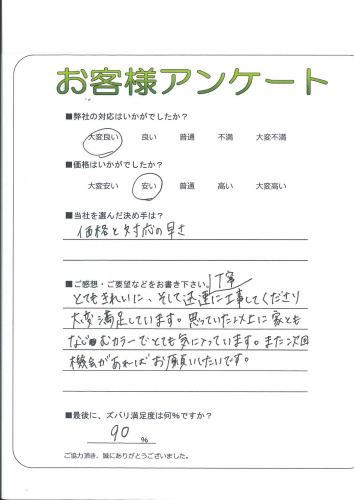 お客様アンケート
■弊社の対応はいかがでしたか?
大変良い 良い 普通 不満 大変不満
■価格はいかがでしたか?
大変安い 安い 普通 高い 大変高い
■当社を選んだ決め手は?
価格と対応の早さ
■ご感想・ご要望などをお書き下さい。
丁寧
とてもきれいに、そして迅速に工事してくださり
大変満足しています。思っていた以上に家とも
なじむカラーでとても気に入っています。また次回
機会があればお願いしたいです。
■最後に、ズバリ満足度は何%ですか?
90 %
ご協力頂き、誠にありがとうございました。